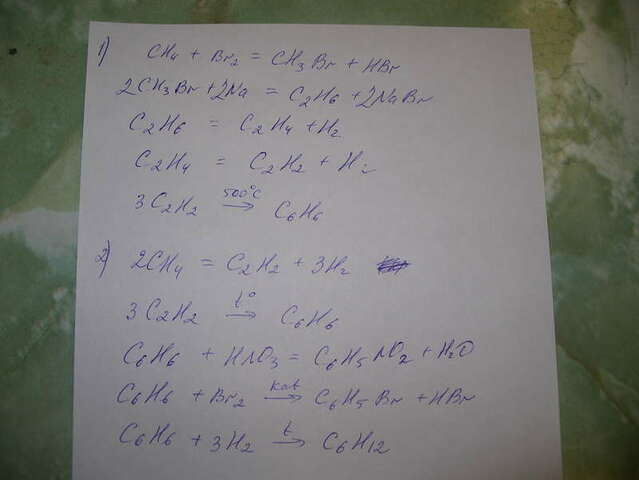 1) CH4 + Br2 = CH3Br + HBr
2CH3Br + 2Na = C2H6 + 2NaBr
C2H6 = C2H4 + H2
C2H4 = C2H2 + H2
3C2H2 500°C → C6H6
2) 2CH4 = C2H2 + 3H2
3C2H2 t° → C6H6
C6H6 + HNO3 = C6H5NO2 + H2O
C6H6 + Br2 kat → C6H5Br + HBr
C6H6 + 3H2 t → C6H12